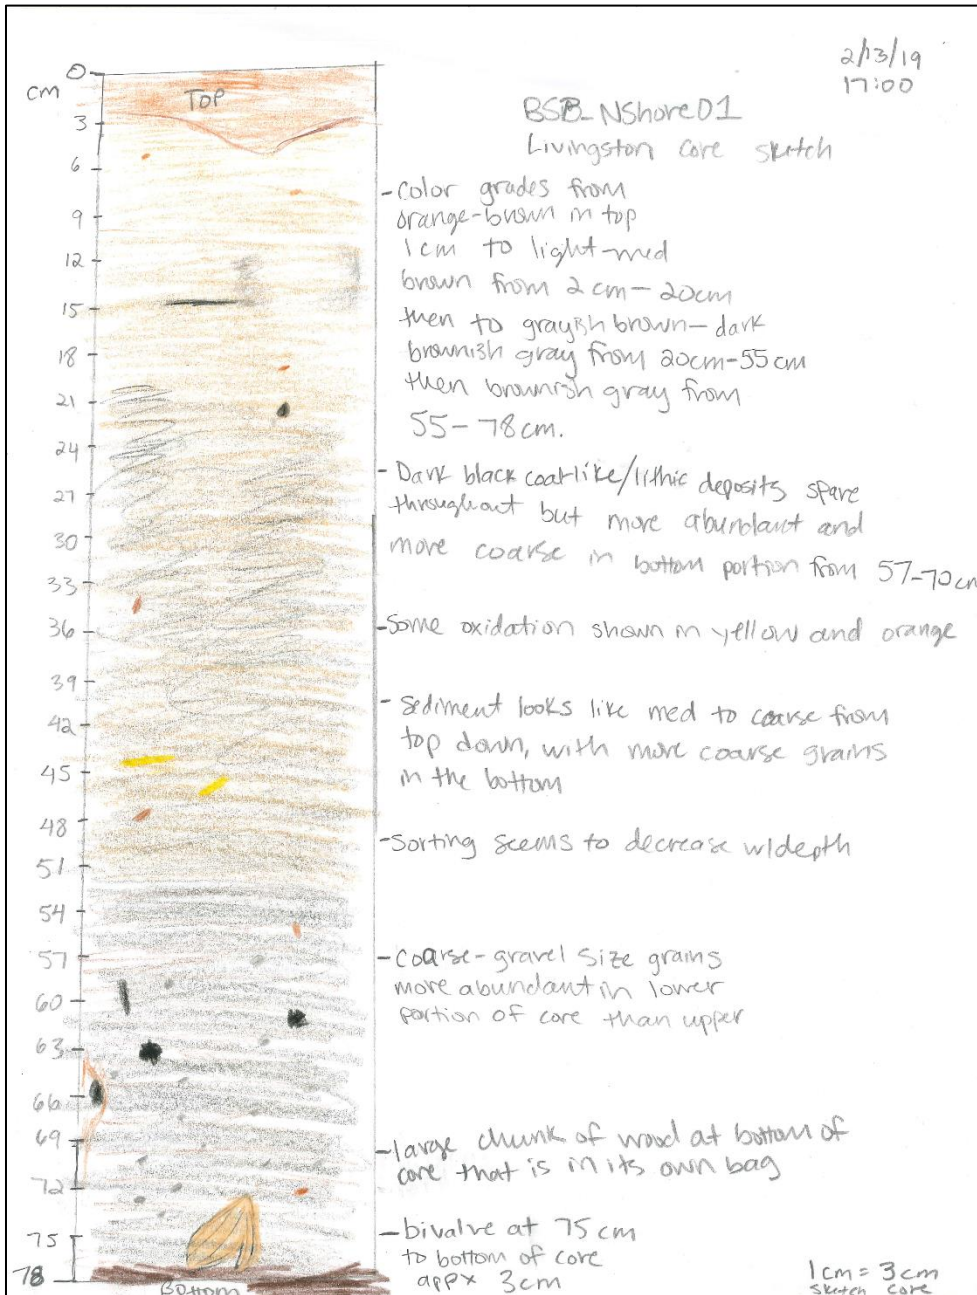 2/13/19
17:00
BSB_NShore01
Livingston core sketch
cm
TOP
0
3
6
9
12
15
18
21
24
27
30
33
36
39
42
45
48
51
54
57
60
63
66
69
72
75
78
Bottom
-color grades from
orange-brown in top
1cm to light-med
brown from 2cm-20cm
then to grayish brown-dark
brownish gray from 20cm-55cm
then brownish gray from
55-78cm.
-Dark black coat like/lithic deposits spare
throughout but more abundant and
more coarse in bottom portion from 57-70cm
-Some oxidation shown in yellow and orange
-Sediment looks like med to coarse from
top down, with more coarse grains
in the bottom
-Sorting seems to decrease w/depth
-coarse-gravel size grains
more abundant in lower
portion of core than upper
-large chunk of wood at bottom of
core that is in its own bag
-bivalve at 75cm
to bottom of core
appx 3cm
1cm = 3cm
sketch core